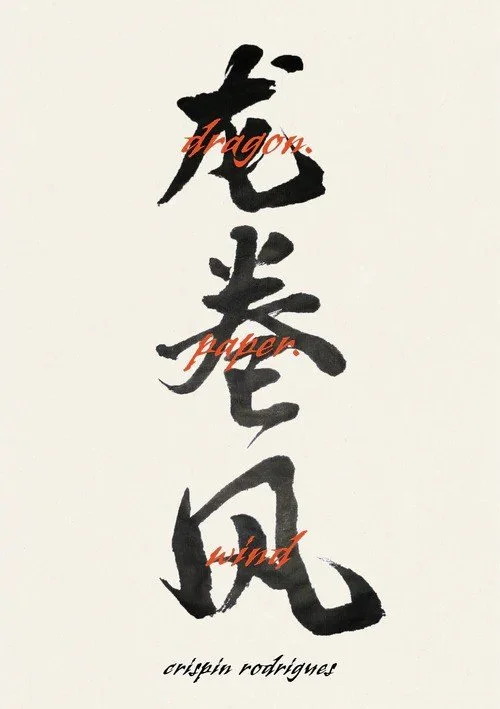 龙
dragon.
卷
paper.
风
wind
crispin rodrigues